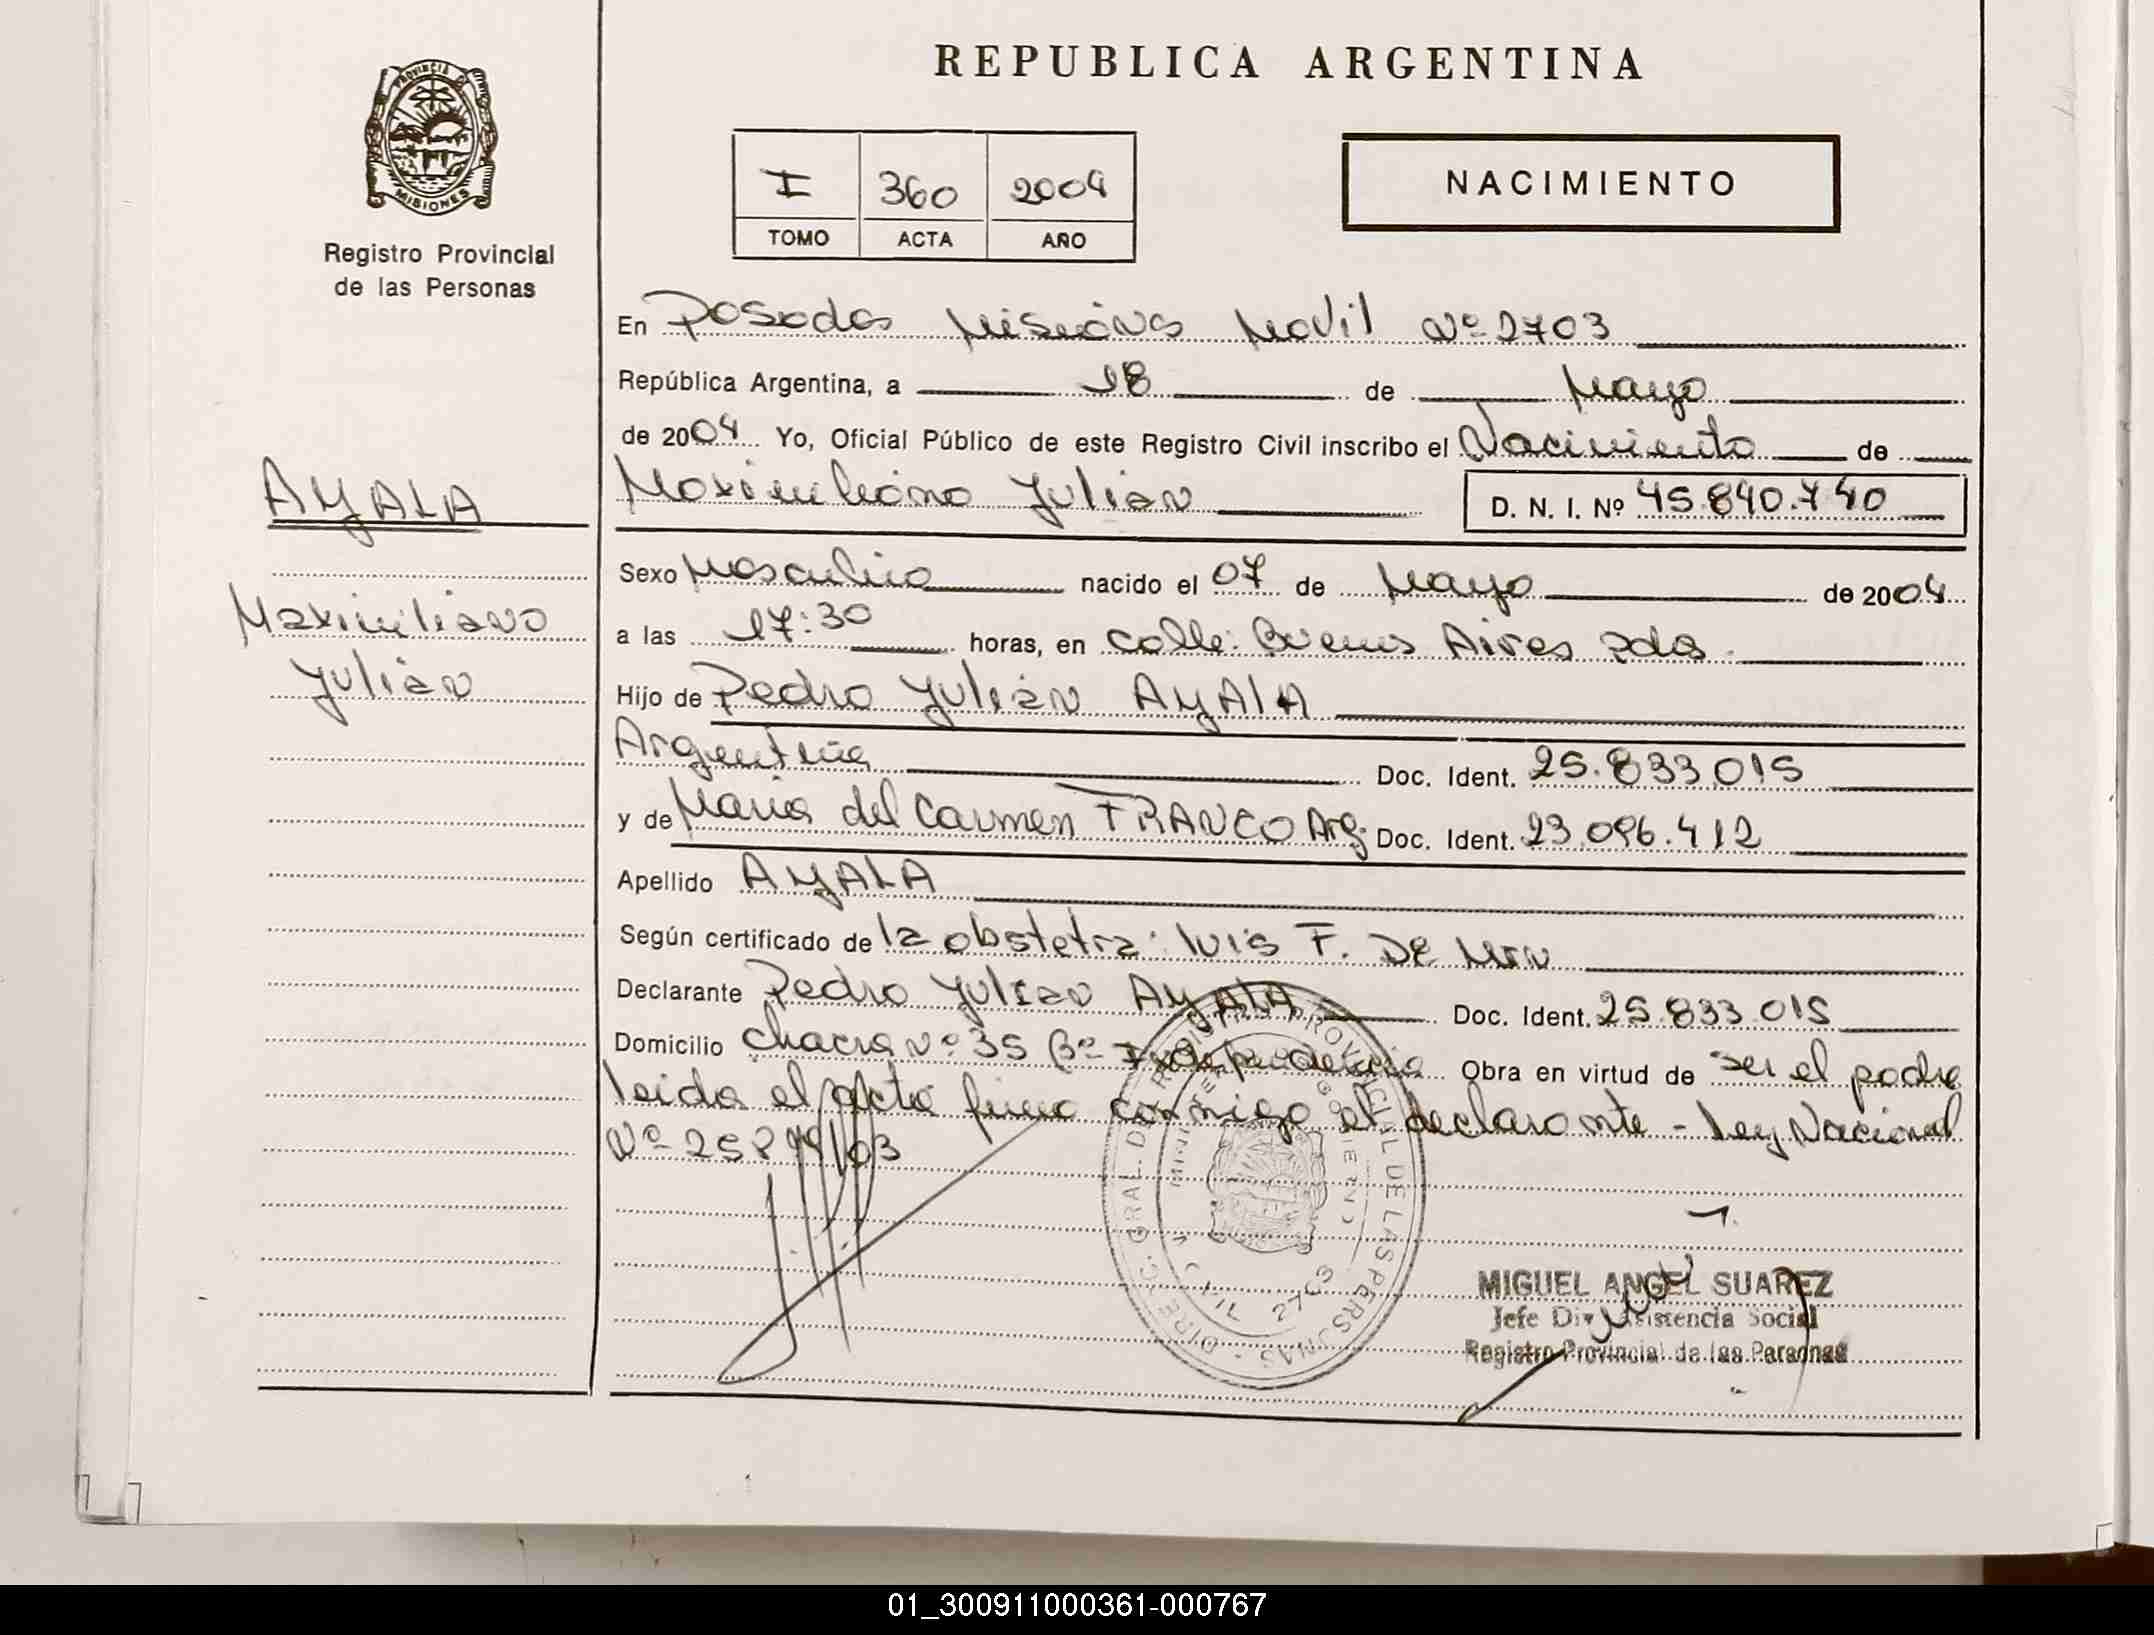 REPUBLICA ARGENTINA
PROVINCIA DE
MISIONES
Registro Provincial
de las Personas
I 360 2004
TOMO ACTA AÑO
NACIMIENTO
En Posadas Misiones Movil Nº 2703
República Argentina, a 18 de Mayo
de 2004 Yo, Oficial Público de este Registro Civil inscribo el Nacimiento de
Maximiliano Julian D. N. I. Nº 45.840.740
AYALA
Maximiliano
Julián
Sexo Masculino nacido el 07 de Mayo de 2004
a las 17:30 horas, en calle: Buenos Aires Pdas
Hijo de Pedro Julián AYALA
Argentina Doc. Ident. 25.833.015
y de Maria del Carmen FRANCO Arg. Doc. Ident. 23.096.412
Apellido AYALA
Según certificado de la obstetra: Luis F. De
Declarante Pedro Julian AYALA Doc. Ident. 25.833.015
Domicilio Chacra Nº 35 Bº Independencia Obra en virtud de ser el padre
leida el acta firma conmigo el declarante - Ley Nacional
Nº
DIREC. GRAL. DE REGISTRO PROVINCIAL DE LAS PERSONAS
MIGUEL ANGEL SUAREZ
Jefe Div. Asistencia Social
Registro Provincial de las Personas
01_300911000361-000767